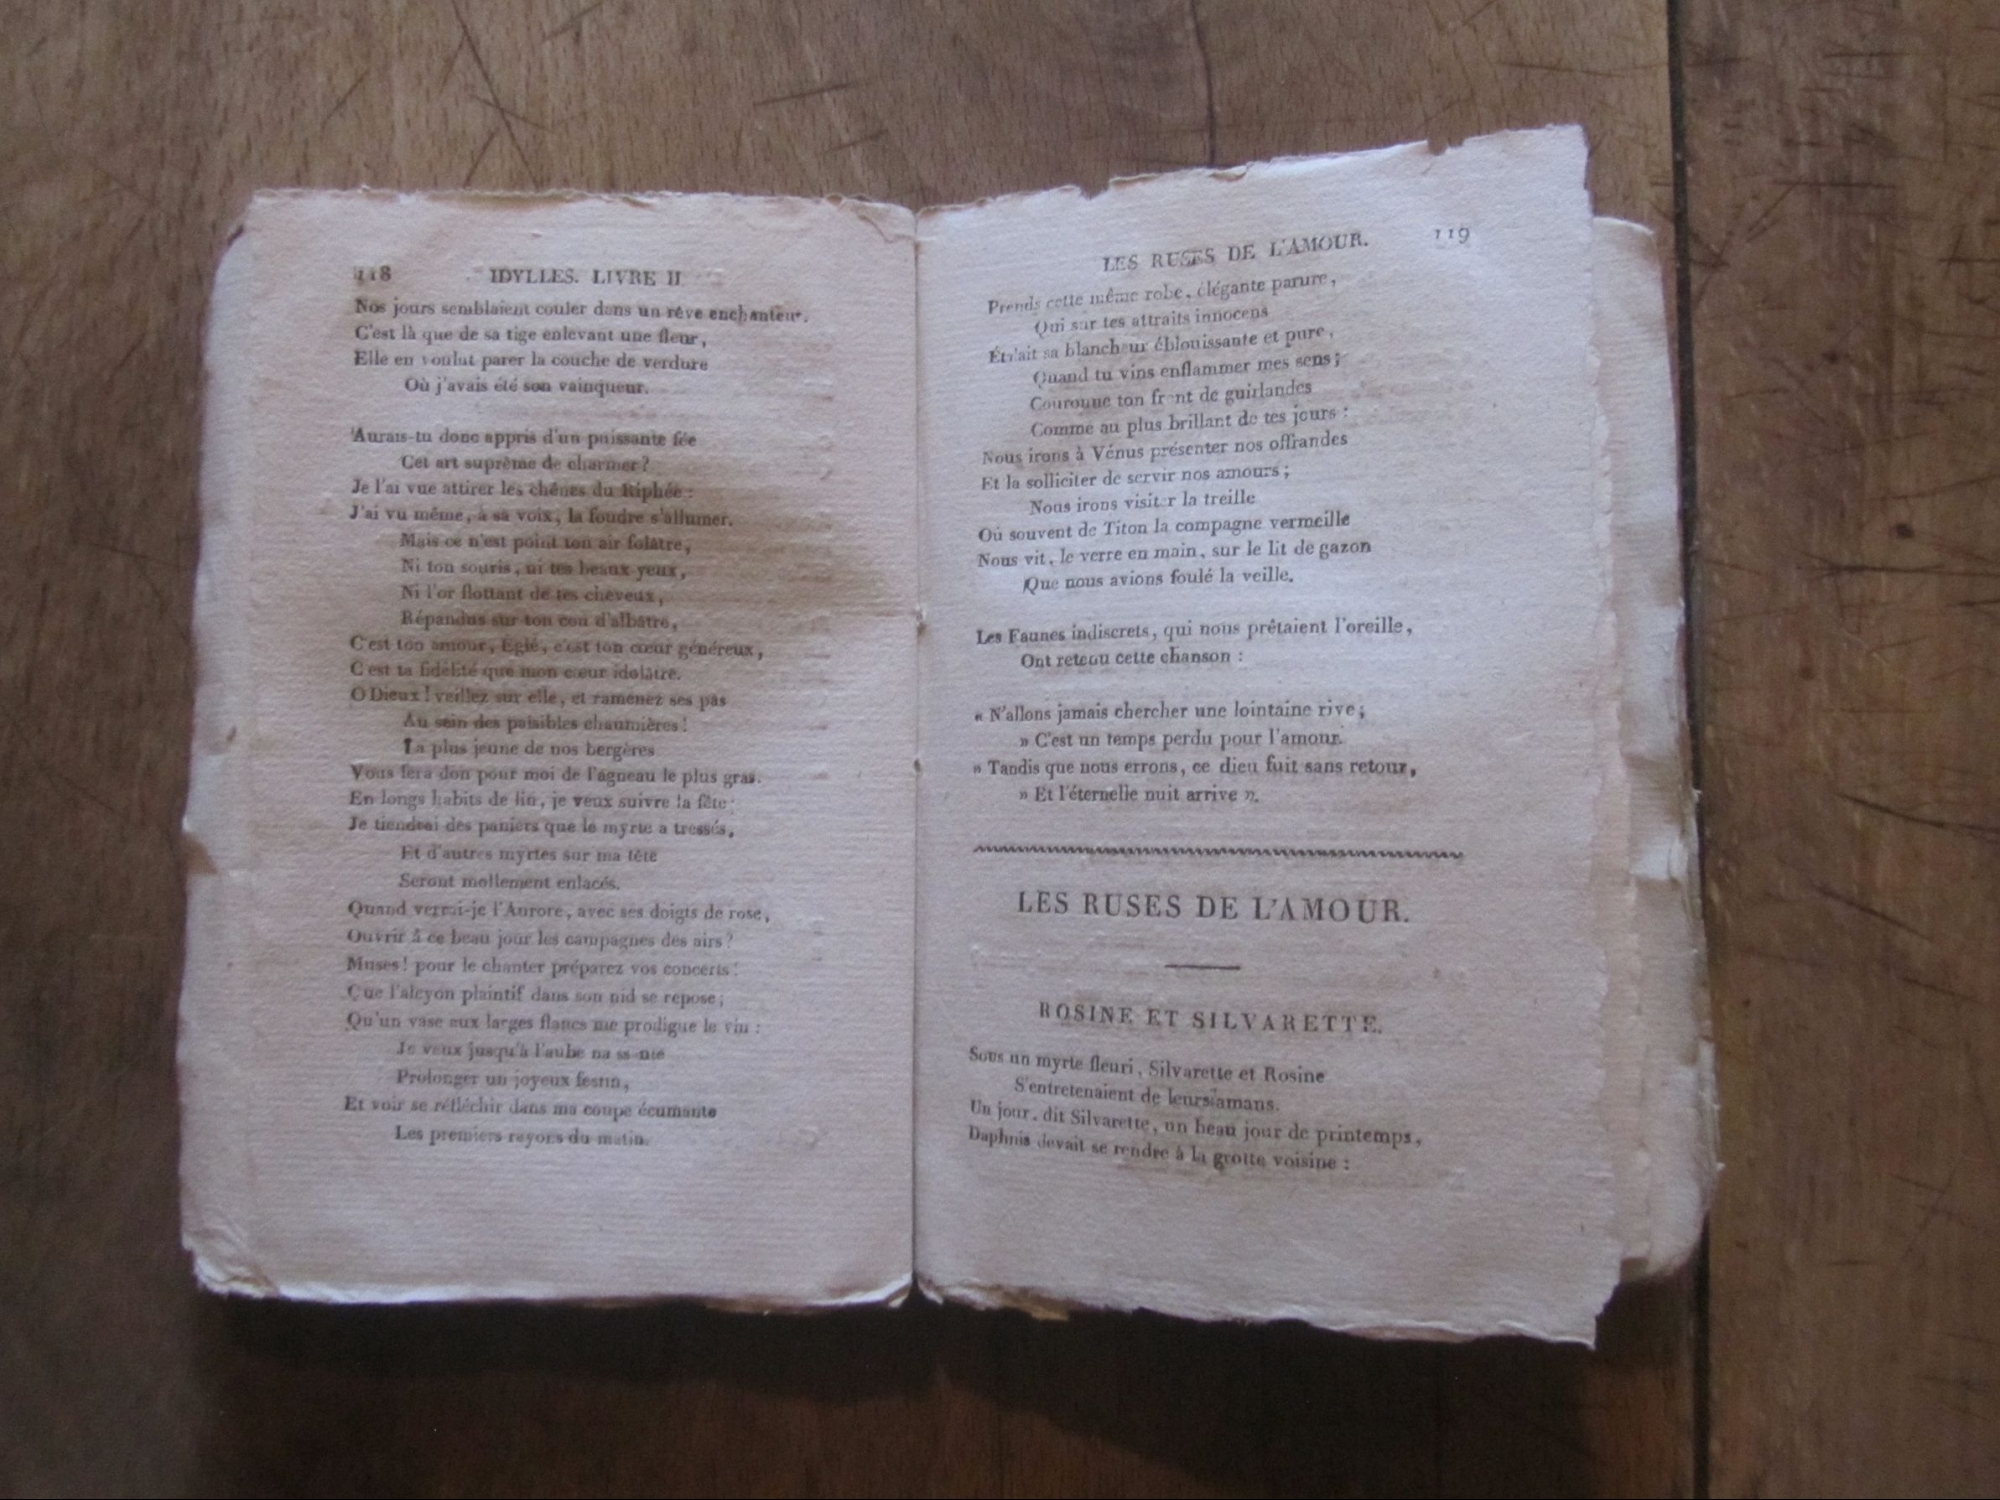 118 IDYLLES. LIVRE II
Nos jours semblaient couler dans un rêve enchanteur.
C'est là que de sa tige enlevant une fleur,
Elle en voulut parer la couche de verdure
Où j'avais été son vainqueur.
Aurais-tu donc appris d'un puissante fée
Cet art suprême de charmer?
Je l'ai vue attirer les chênes du Riphée :
J'ai vu même, à sa voix, la foudre s'allumer.
Mais ce n'est point ton air folâtre,
Ni ton souris, ni tes beaux yeux,
Ni l'or flottant de tes cheveux,
Répandus sur ton cou d'albâtre,
C'est ton amour, Eglé, c'est ton cœur généreux,
C'est ta fidélité que mon cœur idolâtre.
O Dieux! veillez sur elle, et ramenez ses pas
Au sein des paisibles chaumières!
La plus jeune de nos bergères
Vous fera don pour moi de l'agneau le plus gras.
En longs habits de lin, je veux suivre la fête;
Je tiendrai des paniers que le myrte a tressés,
Et d'autres myrtes sur ma tête
Seront mollement enlacés.
Quand verrai-je l'Aurore, avec ses doigts de rose,
Ouvrir à ce beau jour les campagnes des airs?
Muses! pour le chanter préparez vos concerts!
Que l'alcyon plaintif dans son nid se repose;
Qu'un vase aux larges flancs me prodigue le vin :
Je veux jusqu'à l'aube naissante
Prolonger un joyeux festin,
Et voir se réfléchir dans ma coupe écumante
Les premiers rayons du matin.
LES RUSES DE L'AMOUR. 119
Prends cette même robe, élégante parure,
Qui sur tes attraits innocens
Étalait sa blancheur éblouissante et pure,
Quand tu vins enflammer mes sens;
Couronne ton front de guirlandes
Comme au plus brillant de tes jours :
Nous irons à Vénus présenter nos offrandes
Et la solliciter de servir nos amours;
Nous irons visiter la treille
Où souvent de Titon la compagne vermeille
Nous vit, le verre en main, sur le lit de gazon
Que nous avions foulé la veille.
Les Faunes indiscrets, qui nous prêtaient l'oreille,
Ont retenu cette chanson :
« N'allons jamais chercher une lointaine rive;
» C'est un temps perdu pour l'amour.
» Tandis que nous errons, ce dieu fuit sans retour,
» Et l'éternelle nuit arrive ».
LES RUSES DE L'AMOUR.
ROSINE ET SILVARETTE.
Sous un myrte fleuri, Silvarette et Rosine
S'entretenaient de leurs amans.
Un jour, dit Silvarette, un beau jour de printemps,
Daphnis devait se rendre à la grotte voisine :